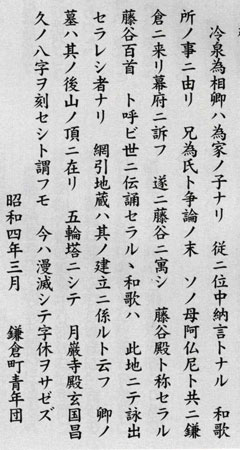 冷泉為相卿ハ為家ノ子ナリ　従二位中納言トナル　和歌
所ノ事ニ由リ　兄為氏ト争論ノ末　ソノ母阿仏尼ト共ニ鎌
倉ニ来リ幕府ニ訴フ　遂ニ藤谷ニ寓シ　藤谷殿ト称セラル
藤谷百首　ト呼ビ世ニ伝誦セラルヽ和歌ハ　此地ニテ詠出
セラレシ者ナリ　網引地蔵ハ其ノ建立ニ係ルト云フ　卿ノ
墓ハ其ノ後山ノ頂ニ在リ　五輪塔ニシテ　月巌寺殿玄国昌
久ノ八字ヲ刻セシト謂フモ　今ハ漫滅シテ字休ヲサゼズ
昭和四年三月　鎌倉町青年団